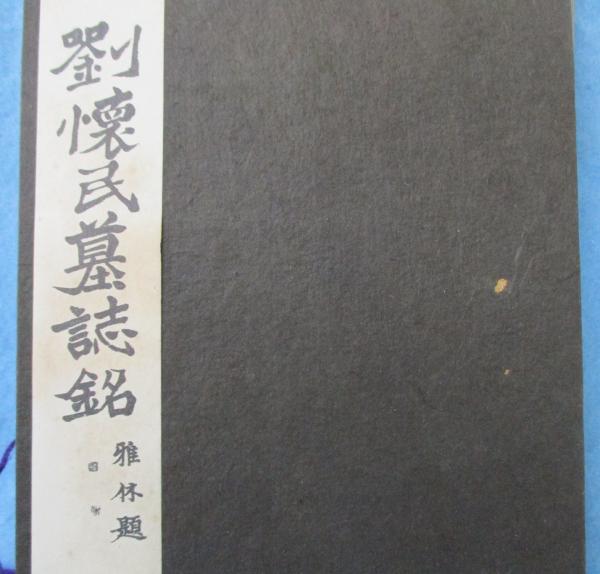 劉懷民墓誌銘
雅休題